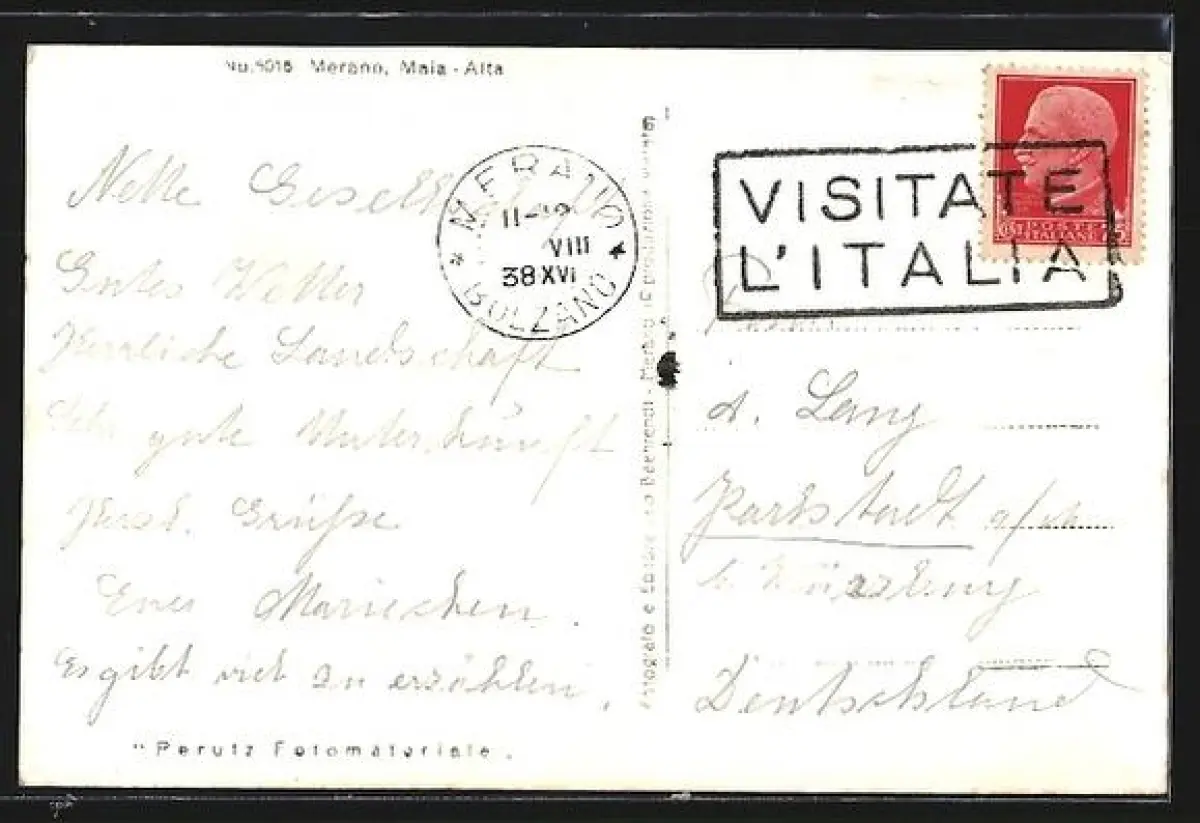 No. 5015 Merano, Maia - Alta
Nette Gesellschaft
Gutes Wetter
Herrliche Landschaft
Sehr gute Unterkunft
Herzl. Grüße
Euer Mariechen.
Es gibt viel zu erzählen.
"Perutz Fotomateriale".
MERANO
11-12
VIII
38 XVI
BOLZANO
Fotografo e Editore Leo Baehrendt - Merano (Riproduzione vietata)
VISITATE
L'ITALIA
POSTE
ITALIANE
75
A. Lang
Karlstadt a/M
b. Würzburg
Deutschland